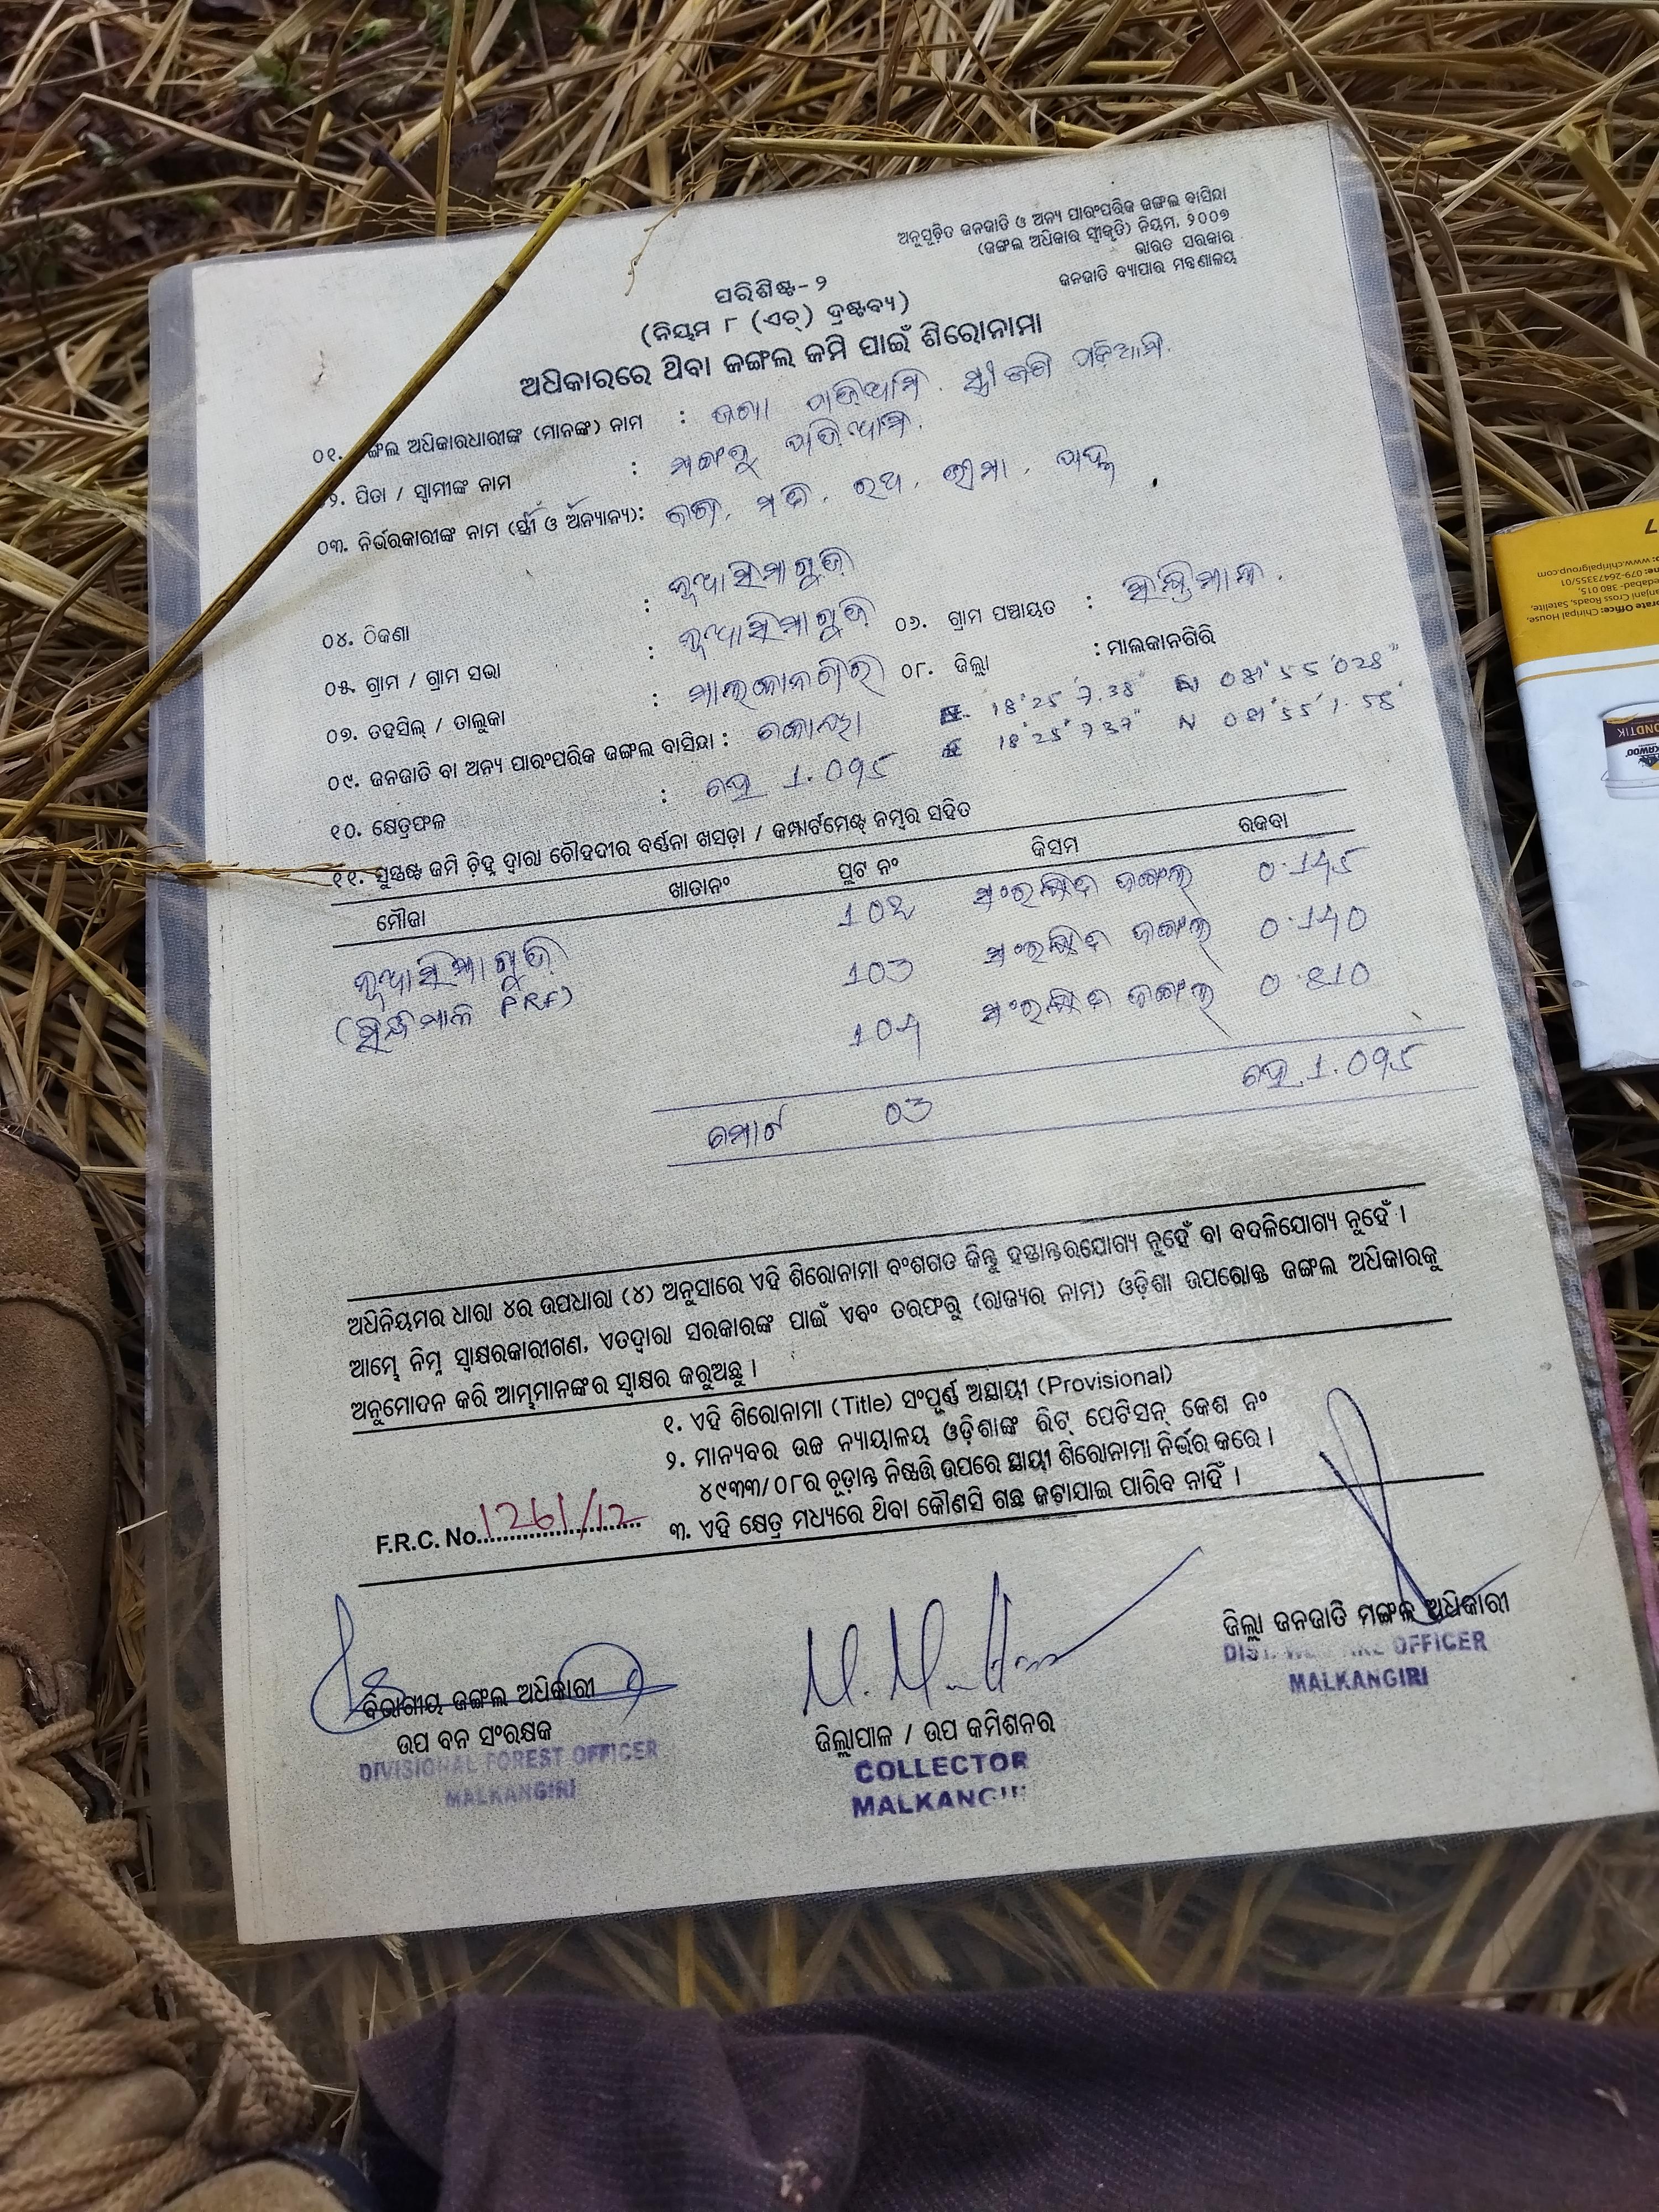 ଅନୁସୂଚିତ ଜନଜାତି ଓ ଅନ୍ୟ ପାରଂପରିକ ଜଙ୍ଗଲ ବାସିନ୍ଦା
(ଜଙ୍ଗଲ ଅଧିକାର ସ୍ୱୀକୃତି) ନିୟମ, ୨୦୦୭
ଭାରତ ସରକାର
ଜନଜାତି ବ୍ୟାପାର ମନ୍ତ୍ରଣାଳୟ
ପରିଶିଷ୍ଟ-୨
(ନିୟମ ୮ (ଏଚ୍) ଦ୍ରଷ୍ଟବ୍ୟ)
ଅଧିକାରରେ ଥିବା ଜଙ୍ଗଲ ଜମି ପାଇଁ ଶିରୋନାମା
୦୧. ଅଧିକାରଧାରୀଙ୍କ (ମାନଙ୍କ) ନାମ :
ପିତା / ସ୍ୱାମୀଙ୍କ ନାମ :
୦୩. ନିର୍ଭରକାରୀଙ୍କ ନାମ (ସ୍ତ୍ରୀ ଓ ଅନ୍ୟାନ୍ୟ):
୦୪. ଠିକଣା : ନୂଆସିମାଗୁଡ଼ା
୦୫. ଗ୍ରାମ / ଗ୍ରାମ ସଭା : ନୂଆସିମାଗୁଡ଼ା ୦୬. ଗ୍ରାମ ପଞ୍ଚାୟତ :
୦୭. ତହସିଲ୍ / ତାଲୁକା : ମାଲକାନଗିରି ୦୮. ଜିଲ୍ଲା : ମାଲକାନଗିରି
୦୯. ଜନଜାତି ବା ଅନ୍ୟ ପାରଂପରିକ ଜଙ୍ଗଲ ବାସିନ୍ଦା : କୋୟା 18°25'7.38" N 081°55'028"
୧୦. କ୍ଷେତ୍ରଫଳ : ହେ 1.095 18°25'737" N 081°55'1.58"
୧୧. ସୁସ୍ପଷ୍ଟ ଜମି ଚିହ୍ନ ଦ୍ୱାରା ଚୌହଦୀର ବର୍ଣ୍ଣନା ଖସଡ଼ା / କମ୍ପାର୍ଟମେଣ୍ଟ୍ ନମ୍ବର ସହିତ
ମୌଜା ଖାତାନଂ ପ୍ଲଟ ନଂ କିସମ ରକବା
ନୂଆସିମାଗୁଡ଼ା 102 ସଂରକ୍ଷିତ ଜଙ୍ଗଲ 0.145
PRF) 103 ସଂରକ୍ଷିତ ଜଙ୍ଗଲ 0.140
104 ସଂରକ୍ଷିତ ଜଙ୍ଗଲ 0.810
ମୋଟ 03 ହେ 1.095
ଅଧିନିୟମର ଧାରା ୪ର ଉପଧାରା (୪) ଅନୁସାରେ ଏହି ଶିରୋନାମା ବଂଶଗତ କିନ୍ତୁ ହସ୍ତାନ୍ତରଯୋଗ୍ୟ ନୁହେଁ ବା ବଦଳିଯୋଗ୍ୟ ନୁହେଁ ।
ଆମ୍ଭେ ନିମ୍ନ ସ୍ୱାକ୍ଷରକାରୀଗଣ, ଏତଦ୍ୱାରା ସରକାରଙ୍କ ପାଇଁ ଏବଂ ତରଫରୁ (ରାଜ୍ୟର ନାମ) ଓଡ଼ିଶା ଉପରୋକ୍ତ ଜଙ୍ଗଲ ଅଧିକାରକୁ
ଅନୁମୋଦନ କରି ଆମ୍ଭମାନଙ୍କର ସ୍ୱାକ୍ଷର କରୁଅଛୁ ।
୧. ଏହି ଶିରୋନାମା (Title) ସଂପୂର୍ଣ୍ଣ ଅସ୍ଥାୟୀ (Provisional)
୨. ମାନ୍ୟବର ଉଚ୍ଚ ନ୍ୟାୟାଳୟ ଓଡ଼ିଶାଙ୍କ ରିଟ୍ ପେଟିସନ୍ କେଶ ନଂ
୪୯୩୩/୦୮ର ଚୂଡ଼ାନ୍ତ ନିଷ୍ପତ୍ତି ଉପରେ ସ୍ଥାୟୀ ଶିରୋନାମା ନିର୍ଭର କରେ ।
F.R.C. No. 1261/12 ୩. ଏହି କ୍ଷେତ୍ର ମଧ୍ୟରେ ଥିବା କୌଣସି ଗଛ କଟାଯାଇ ପାରିବ ନାହିଁ ।
ବିଭାଗୀୟ ଜଙ୍ଗଲ ଅଧିକାରୀ
ଉପ ବନ ସଂରକ୍ଷକ
DIVISIONAL FOREST OFFICER
MALKANGIRI
ଜିଲ୍ଲାପାଳ / ଉପ କମିଶନର
COLLECTOR
MALKANGIRI
ଜିଲ୍ଲା ଜନଜାତି ମଙ୍ଗଳ ଅଧିକାରୀ
DIST. WELFARE OFFICER
MALKANGIRI